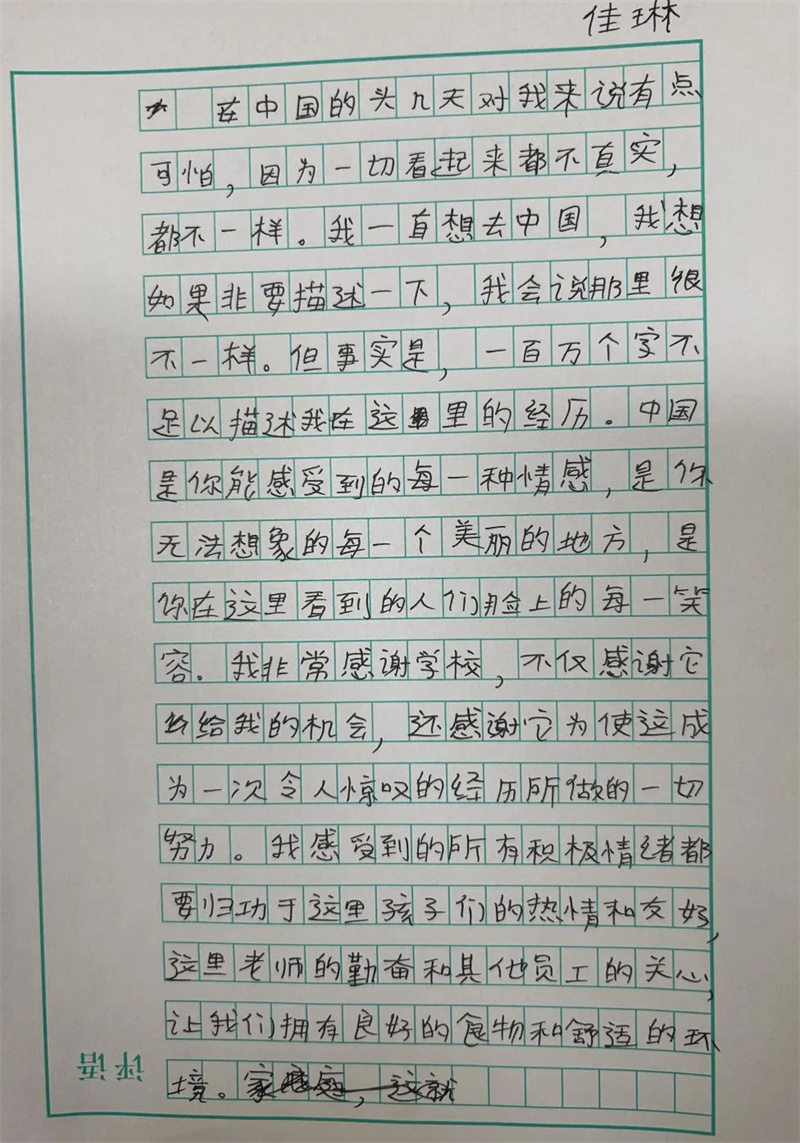 佳琳
在中国的头几天对我来说有点
可怕，因为一切看起来都不真实，
都不一样。我一直想去中国，我想
如果非要描述一下，我会说那里很
不一样。但事实是，一百万个字不
足以描述我在这里的经历。中国
是你能感受到的每一种情感，是你
无法想象的每一个美丽的地方，是
你在这里看到的人们脸上的每一笑
容。我非常感谢学校，不仅感谢它
给我的机会，还感谢它为使这成
为一次令人惊叹的经历所做的一切
努力。我感受到的所有积极情绪都
要归功于这里孩子们的热情和友好，
这里老师的勤奋和其他员工的关心，
让我们拥有良好的食物和舒适的环
境。家庭，这就
评语